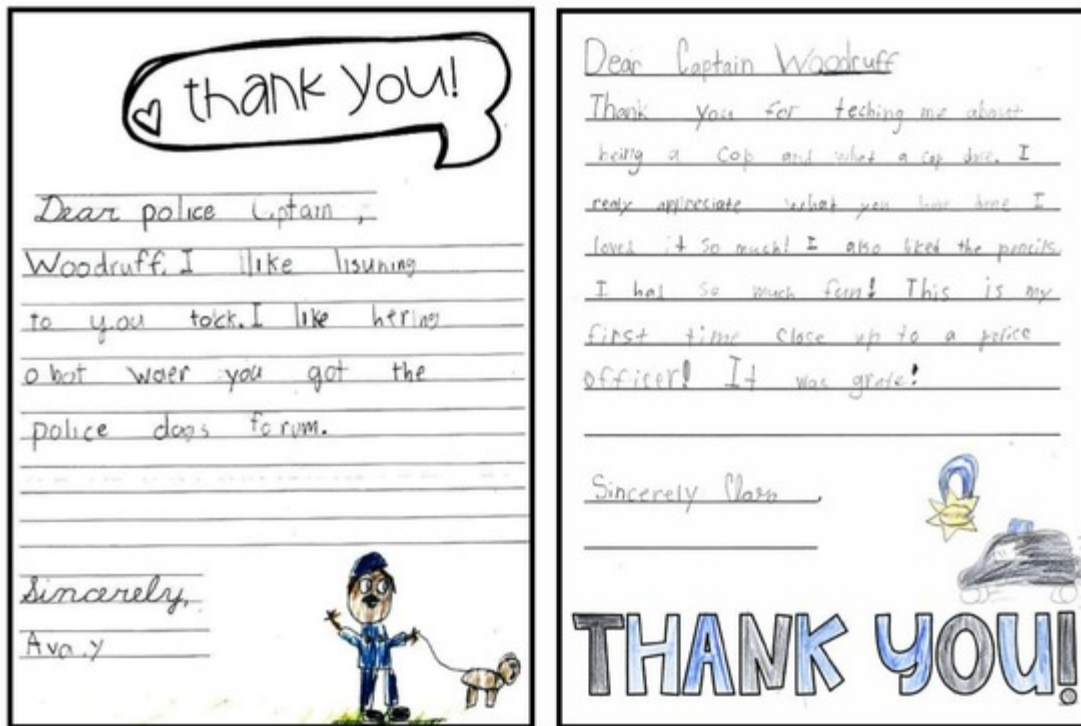 thank you!
Dear police Cptain,
Woodruff. I like lisuning
to you tolck. I like hering
obot waer you got the
police dogs forum.
Sincerely,
Ava.y
Dear Captain Woodruff
Thank you for teching me about
being a cop and what a cop dose. I
realy appreciate what you have done I
loved it so much! I also liked the pencils.
I had so much fun! This is my
first time close up to a police
officer! It was grate!
Sincerely
THANK YOU!